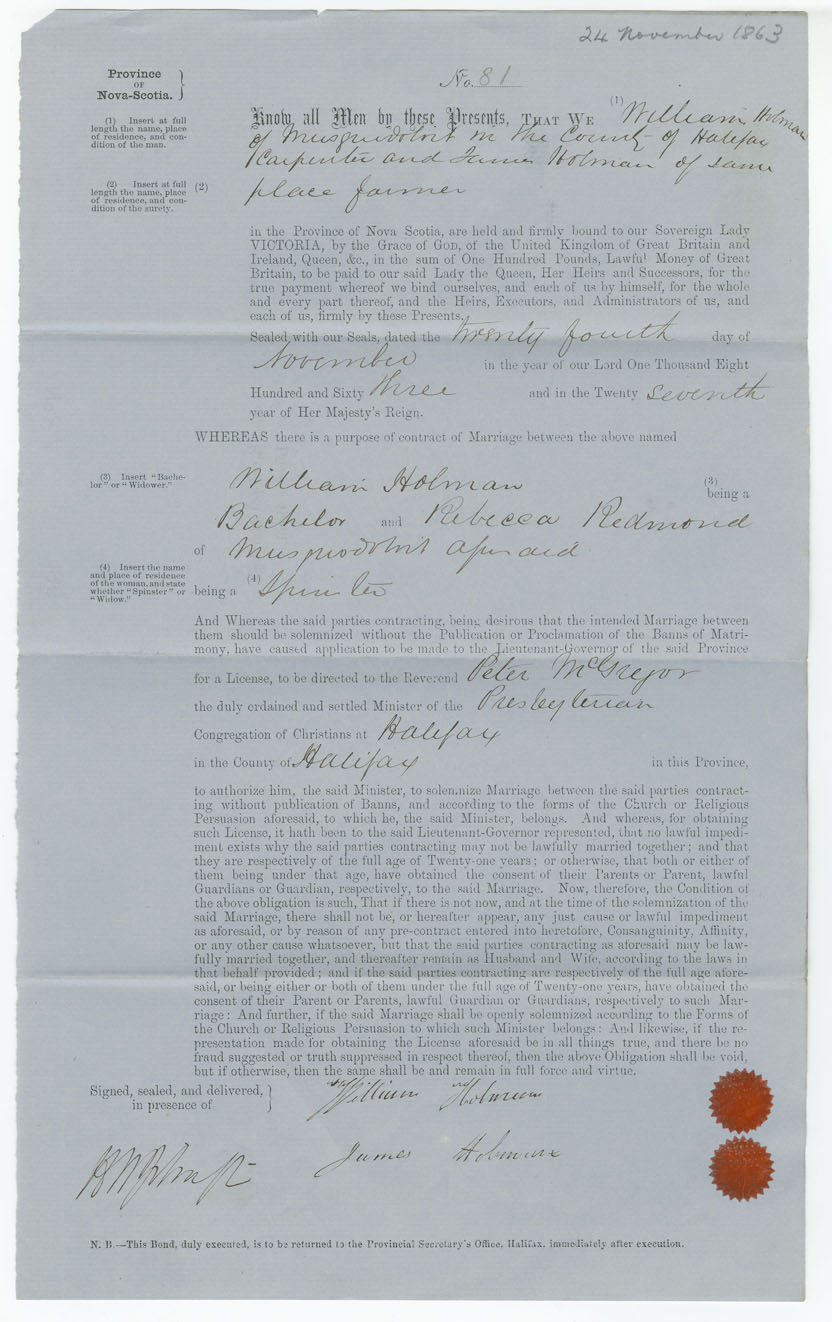 24 November 1863
Province
OF
Nova-Scotia.
No. 81
(1) Insert at full
length the name, place
of residence, and con-
dition of the man.
Know all Men by these Presents, THAT WE (1) William Holman
of Musquidoboit in the County of Halifax
Carpenter and James Holman of same
(2) Insert at full
length the name, place
of residence, and con-
dition of the surety.
(2) place farmer
in the Province of Nova Scotia, are held and firmly bound to our Sovereign Lady
VICTORIA, by the Grace of GOD, of the United Kingdom of Great Britain and
Ireland, Queen, &c., in the sum of One Hundred Pounds, Lawful Money of Great
Britain, to be paid to our said Lady the Queen, Her Heirs and Successors, for the
true payment whereof we bind ourselves, and each of us by himself, for the whole
and every part thereof, and the Heirs, Executors, and Administrators of us, and
each of us, firmly by these Presents.
Sealed with our Seals, dated the twenty fourth day of
November in the year of our Lord One Thousand Eight
Hundred and Sixty three and in the Twenty seventh
year of Her Majesty's Reign.
WHEREAS there is a purpose of contract of Marriage between the above named
(3) Insert "Bache-
lor" or "Widower."
William Holman (3) being a
Bachelor and Rebecca Redmond
of Musquodoboit aforsaid
(4) Insert the name
and place of residence
of the woman, and state
whether "Spinster" or
"Widow."
being a (4) Spinster
And Whereas the said parties contracting, being desirous that the intended Marriage between
them should be solemnized without the Publication or Proclamation of the Banns of Matri-
mony, have caused application to be made to the Lieutenant-Governor of the said Province
for a License, to be directed to the Reverend Peter McGregor
the duly ordained and settled Minister of the Presbyterian
Congregation of Christians at Halifax
in the County of Halifax in this Province,
to authorize him, the said Minister, to solemnize Marriage between the said parties contract-
ing without publication of Banns, and according to the forms of the Church or Religious
Persuasion aforesaid, to which he, the said Minister, belongs. And whereas, for obtaining
such License, it hath been to the said Lieutenant-Governor represented, that no lawful impedi-
ment exists why the said parties contracting may not be lawfully married together; and that
they are respectively of the full age of Twenty-one years; or otherwise, that both or either of
them being under that age, have obtained the consent of their Parents or Parent, lawful
Guardians or Guardian, respectively, to the said Marriage. Now, therefore, the Condition of
the above obligation is such, That if there is not now, and at the time of the solemnization of the
said Marriage, there shall not be, or hereafter appear, any just cause or lawful impediment
as aforesaid, or by reason of any pre-contract entered into heretofore, Consanguinity, Affinity,
or any other cause whatsoever, but that the said parties contracting as aforesaid may be law-
fully married together, and thereafter remain as Husband and Wife, according to the laws in
that behalf provided; and if the said parties contracting are respectively of the full age afore-
said, or being either or both of them under the full age of Twenty-one years, have obtained the
consent of their Parent or Parents, lawful Guardian or Guardians, respectively to such Mar-
riage: And further, if the said Marriage shall be openly solemnized according to the Forms of
the Church or Religious Persuasion to which such Minister belongs: And likewise, if the re-
presentation made for obtaining the License aforesaid be in all things true, and there be no
fraud suggested or truth suppressed in respect thereof, then the above Obligation shall be void,
but if otherwise, then the same shall be and remain in full force and virtue.
Signed, sealed, and delivered,
in presence of
William Holman
James Holman
N. B.—This Bond, duly executed, is to be returned to the Provincial Secretary's Office, Halifax, immediately after execution.